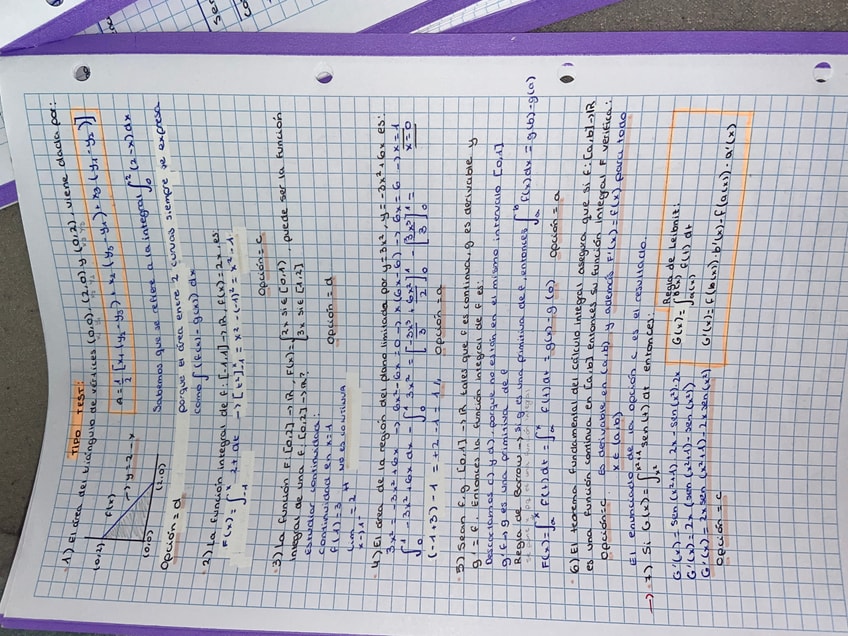 TIPO TEST:
1) El área del triángulo de vértices (0,0), (2,0) y (0,2), viene dada por:
A = 1/2 [x1 (y2 - y3) + x2 (y3 - y1) + x3 (y1 - y2)]
(0,2)
f(x)
→ y = 2 - x
(0,0)
(2,0)
Sabemos que se refiere a la integral ∫₀² (2-x) dx
porque el área entre 2 curvas siempre se expresa
como ∫ (f(x) - g(x)) dx
Opción = d
2) La función integral de f: [-1,1] → ℝ, f(x) = 2x, es:
F(x) = ∫₋₁ˣ 2t dt → [t²]₋₁ˣ = x² - (-1)² = x² - 1
Opción = c
3) La función F: [0,2] → ℝ, F(x) = { 2x si ∈ [0,1) , puede ser la función
3x si ∈ [1,2]
integral de una f: [0,2] → ℝ?
Estudiar continuidad:
Continuidad en x=1
f(1) = 3
lim x→1⁻ = 2 ≠ no es continua
Opción = d
4) El área de la región del plano limitada por y = 3x², y = -3x² + 6x es:
3x² = -3x² + 6x → 6x² - 6x = 0 → x(6x - 6) → 6x = 6 → x = 1
x = 0
∫₀¹ -3x² + 6x dx - ∫₀¹ 3x² = [-3x³/3 + 6x²/2]₀¹ - [3x³/3]₀¹ =
(-1 + 3) - 1 = +2 - 1 = 1 //
Opción = a
5) Sean f, g: [0,1] → ℝ tales que f es continua, g es derivable y
g' = f. Entonces la función integral de f es:
Descartamos c) y d), porque no están en el mismo intervalo [0,1]
g' = f → g es una primitiva de f
Regla de Barrow → si g es una primitiva de f, entonces ∫ₐᵇ f(x) dx = g(b) - g(a)
F(x) = ∫ₐˣ f(t) dt = ∫ₐˣ f(t) dt = g(x) - g(0)
Opción = a
6) El teorema fundamental del cálculo integral asegura que si f: [a,b] → ℝ
es una función continua en [a,b] entonces su función integral F verifica:
Opción C
Es derivable en [a,b] y además F'(x) = f(x) para todo
x ∈ [a,b]
El enunciado de la opción c es el resultado.
→ 7) Si G(x) = ∫ₓ²ˣ²⁺¹ sen(t) dt entonces:
Regla de Leibniz:
G(x) = ∫ₐ₍ₓ₎ᵇ⁽ˣ⁾ f(t) dt
G'(x) = f(b(x)) · b'(x) - f(a(x)) · a'(x)
G'(x) = sen(x²+1) · 2x - sen(x²) · 2x
G'(x) = 2x (sen(x²+1) - sen(x²))
G'(x) = 2x sen(x²+1) - 2x sen(x²)
Opción = c